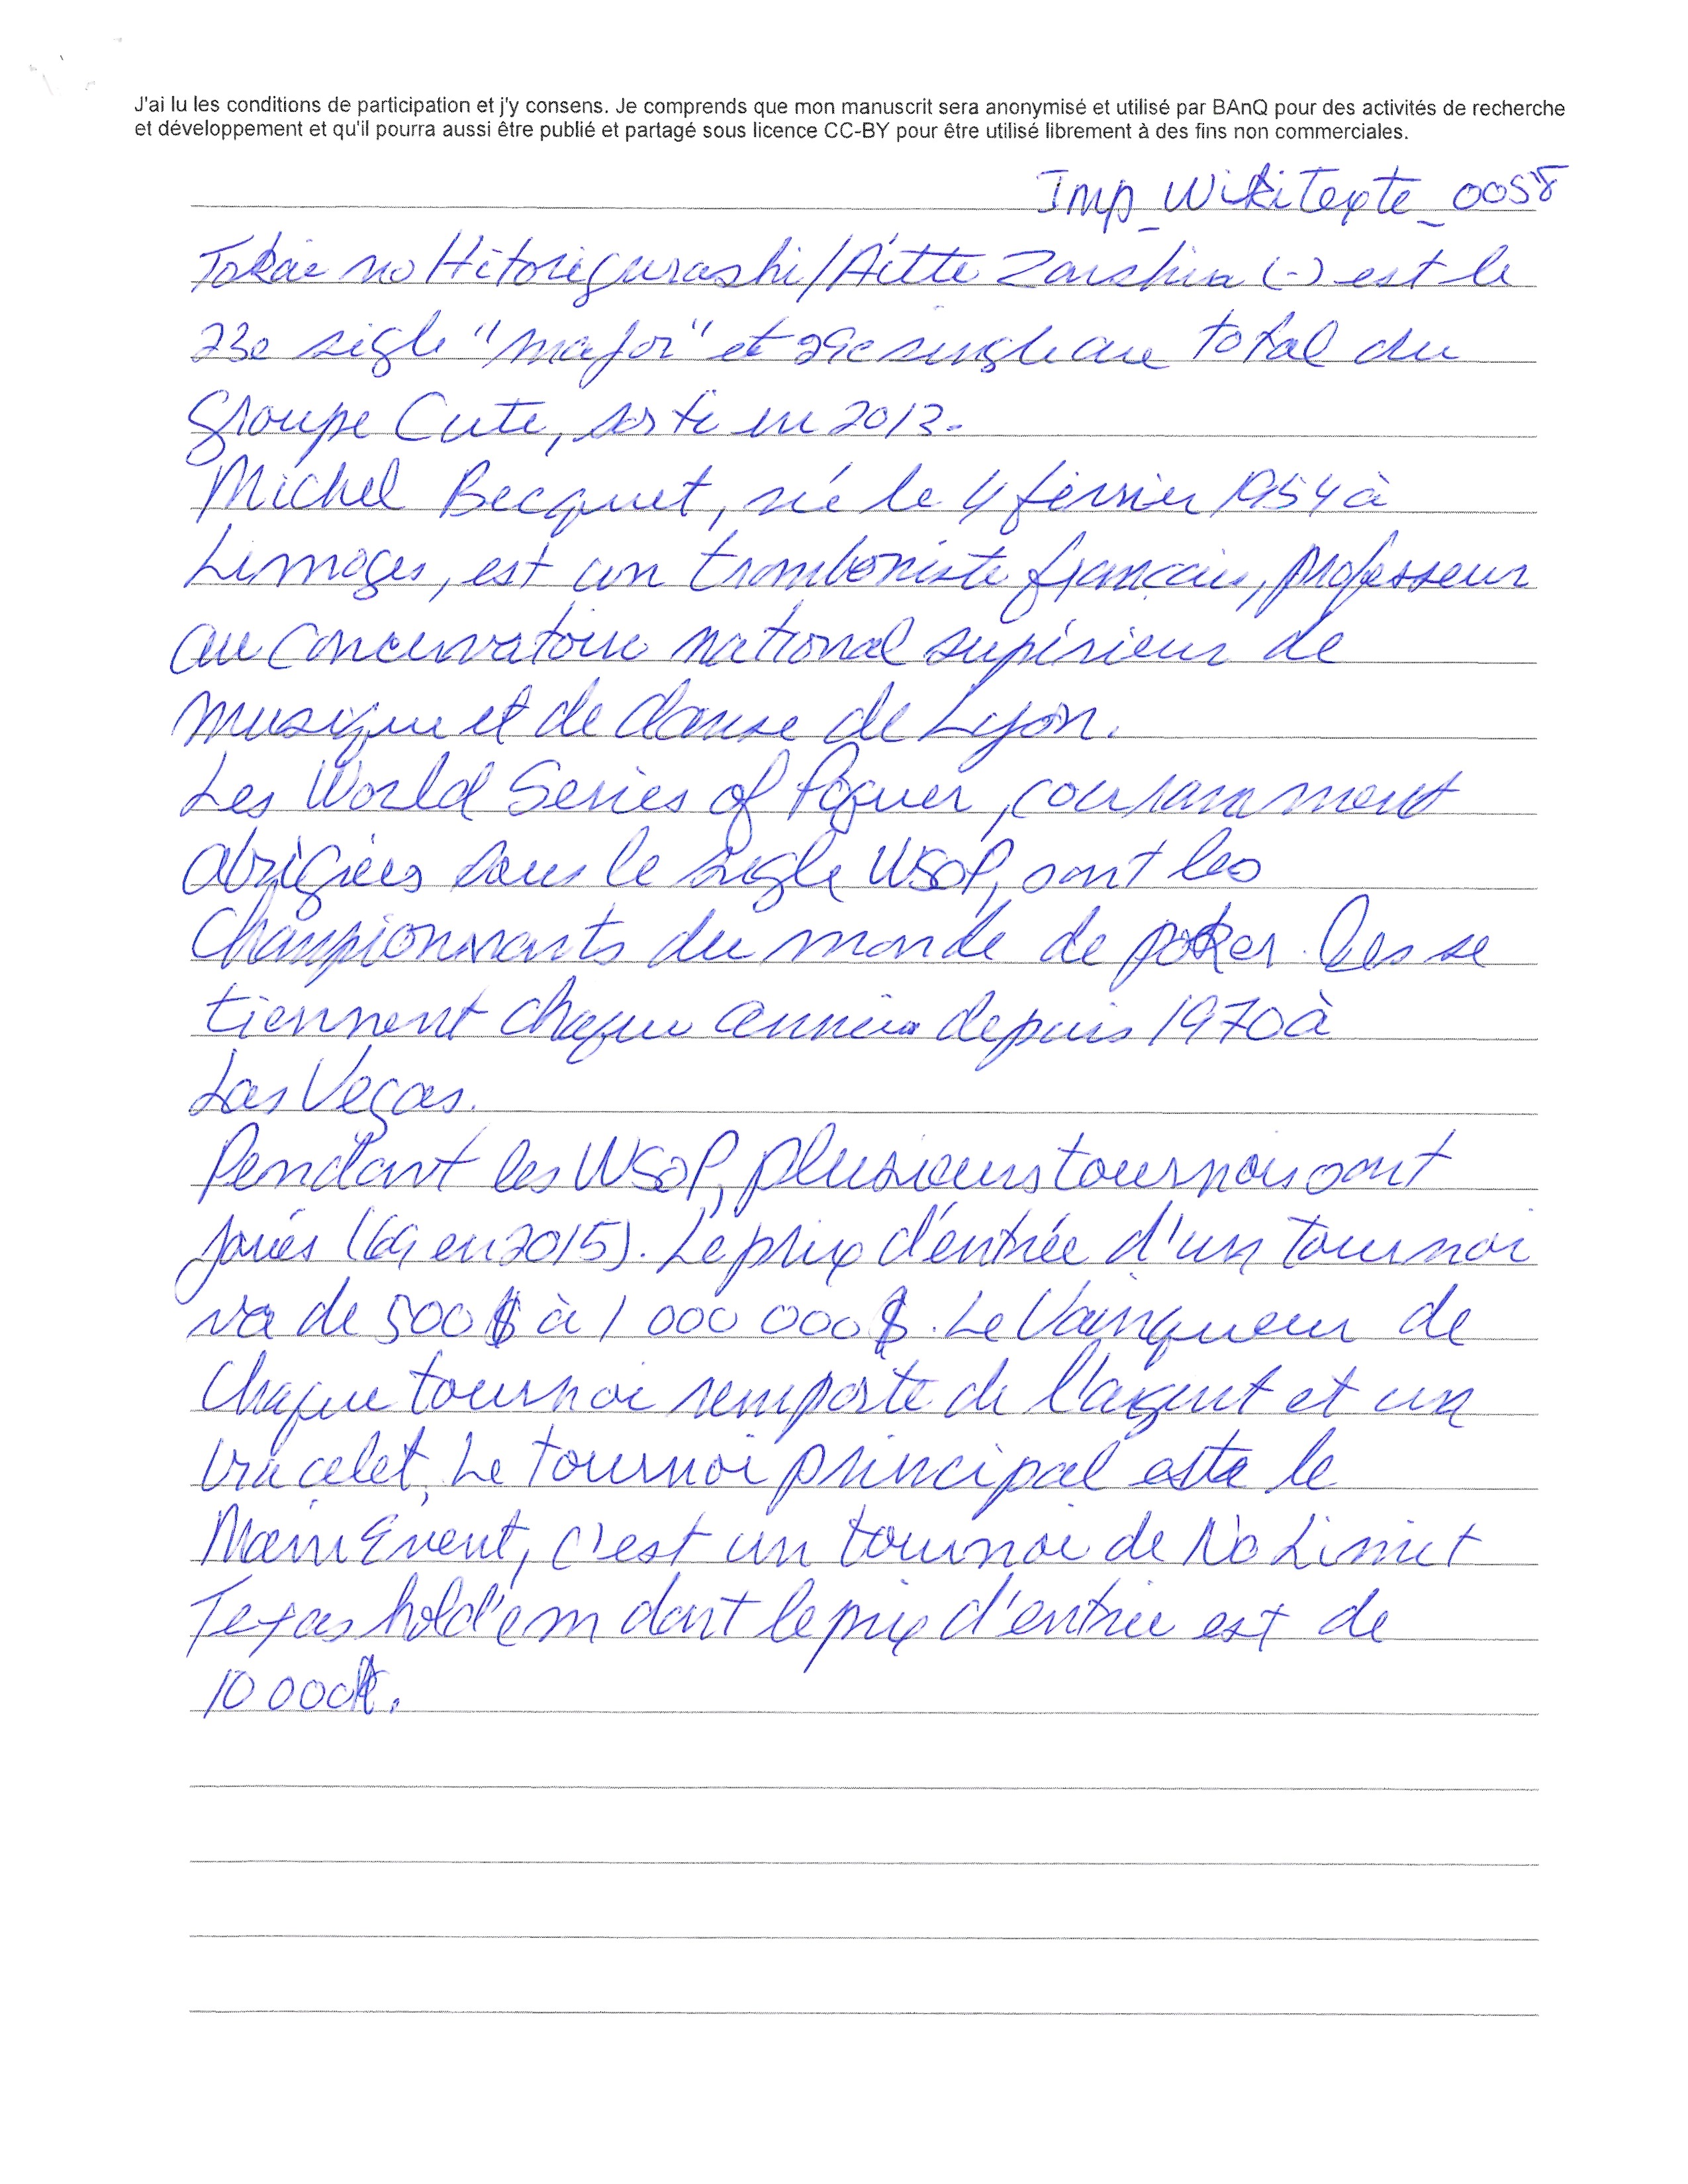 J'ai lu les conditions de participation et j'y consens. Je comprends que mon manuscrit sera anonymisé et utilisé par BAnQ pour des activités de recherche
et développement et qu'il pourra aussi être publié et partagé sous licence CC-BY pour être utilisé librement à des fins non commerciales.
Imp_WikiTexte_0058
Tokai no Hitorigurashi/Aitte Zurshin (-) est le
23e sigle "major" et 29e single au total du
groupe Cute, sorti en 2013.
Michel Becquet, né le 4 février 1954 à
Limoges, est un tromboniste français, professeur
au Concervatoire national supérieur de
musique et de danse de Lyon.
Les World Series of Poquer, couramment
abrigiées sous le sigle WSOP, sont les
Championnants du monde de poker. Les se
tiennent chaque année depuis 1970 à
Las Vegas.
Pendant les WSOP, plusieurs tournois sont
joués (69 en 2015). Le prix d'entrée d'un tournoi
va de 500$ à 1 000 000$. Le Vainqueur de
Chaque tournoi remporte de l'argent et un
bracelet. Le tournoi principal est le
Main Event, c'est un tournoi de No Limit
Texas hold'em dont le prix d'entrée est de
10 000$.